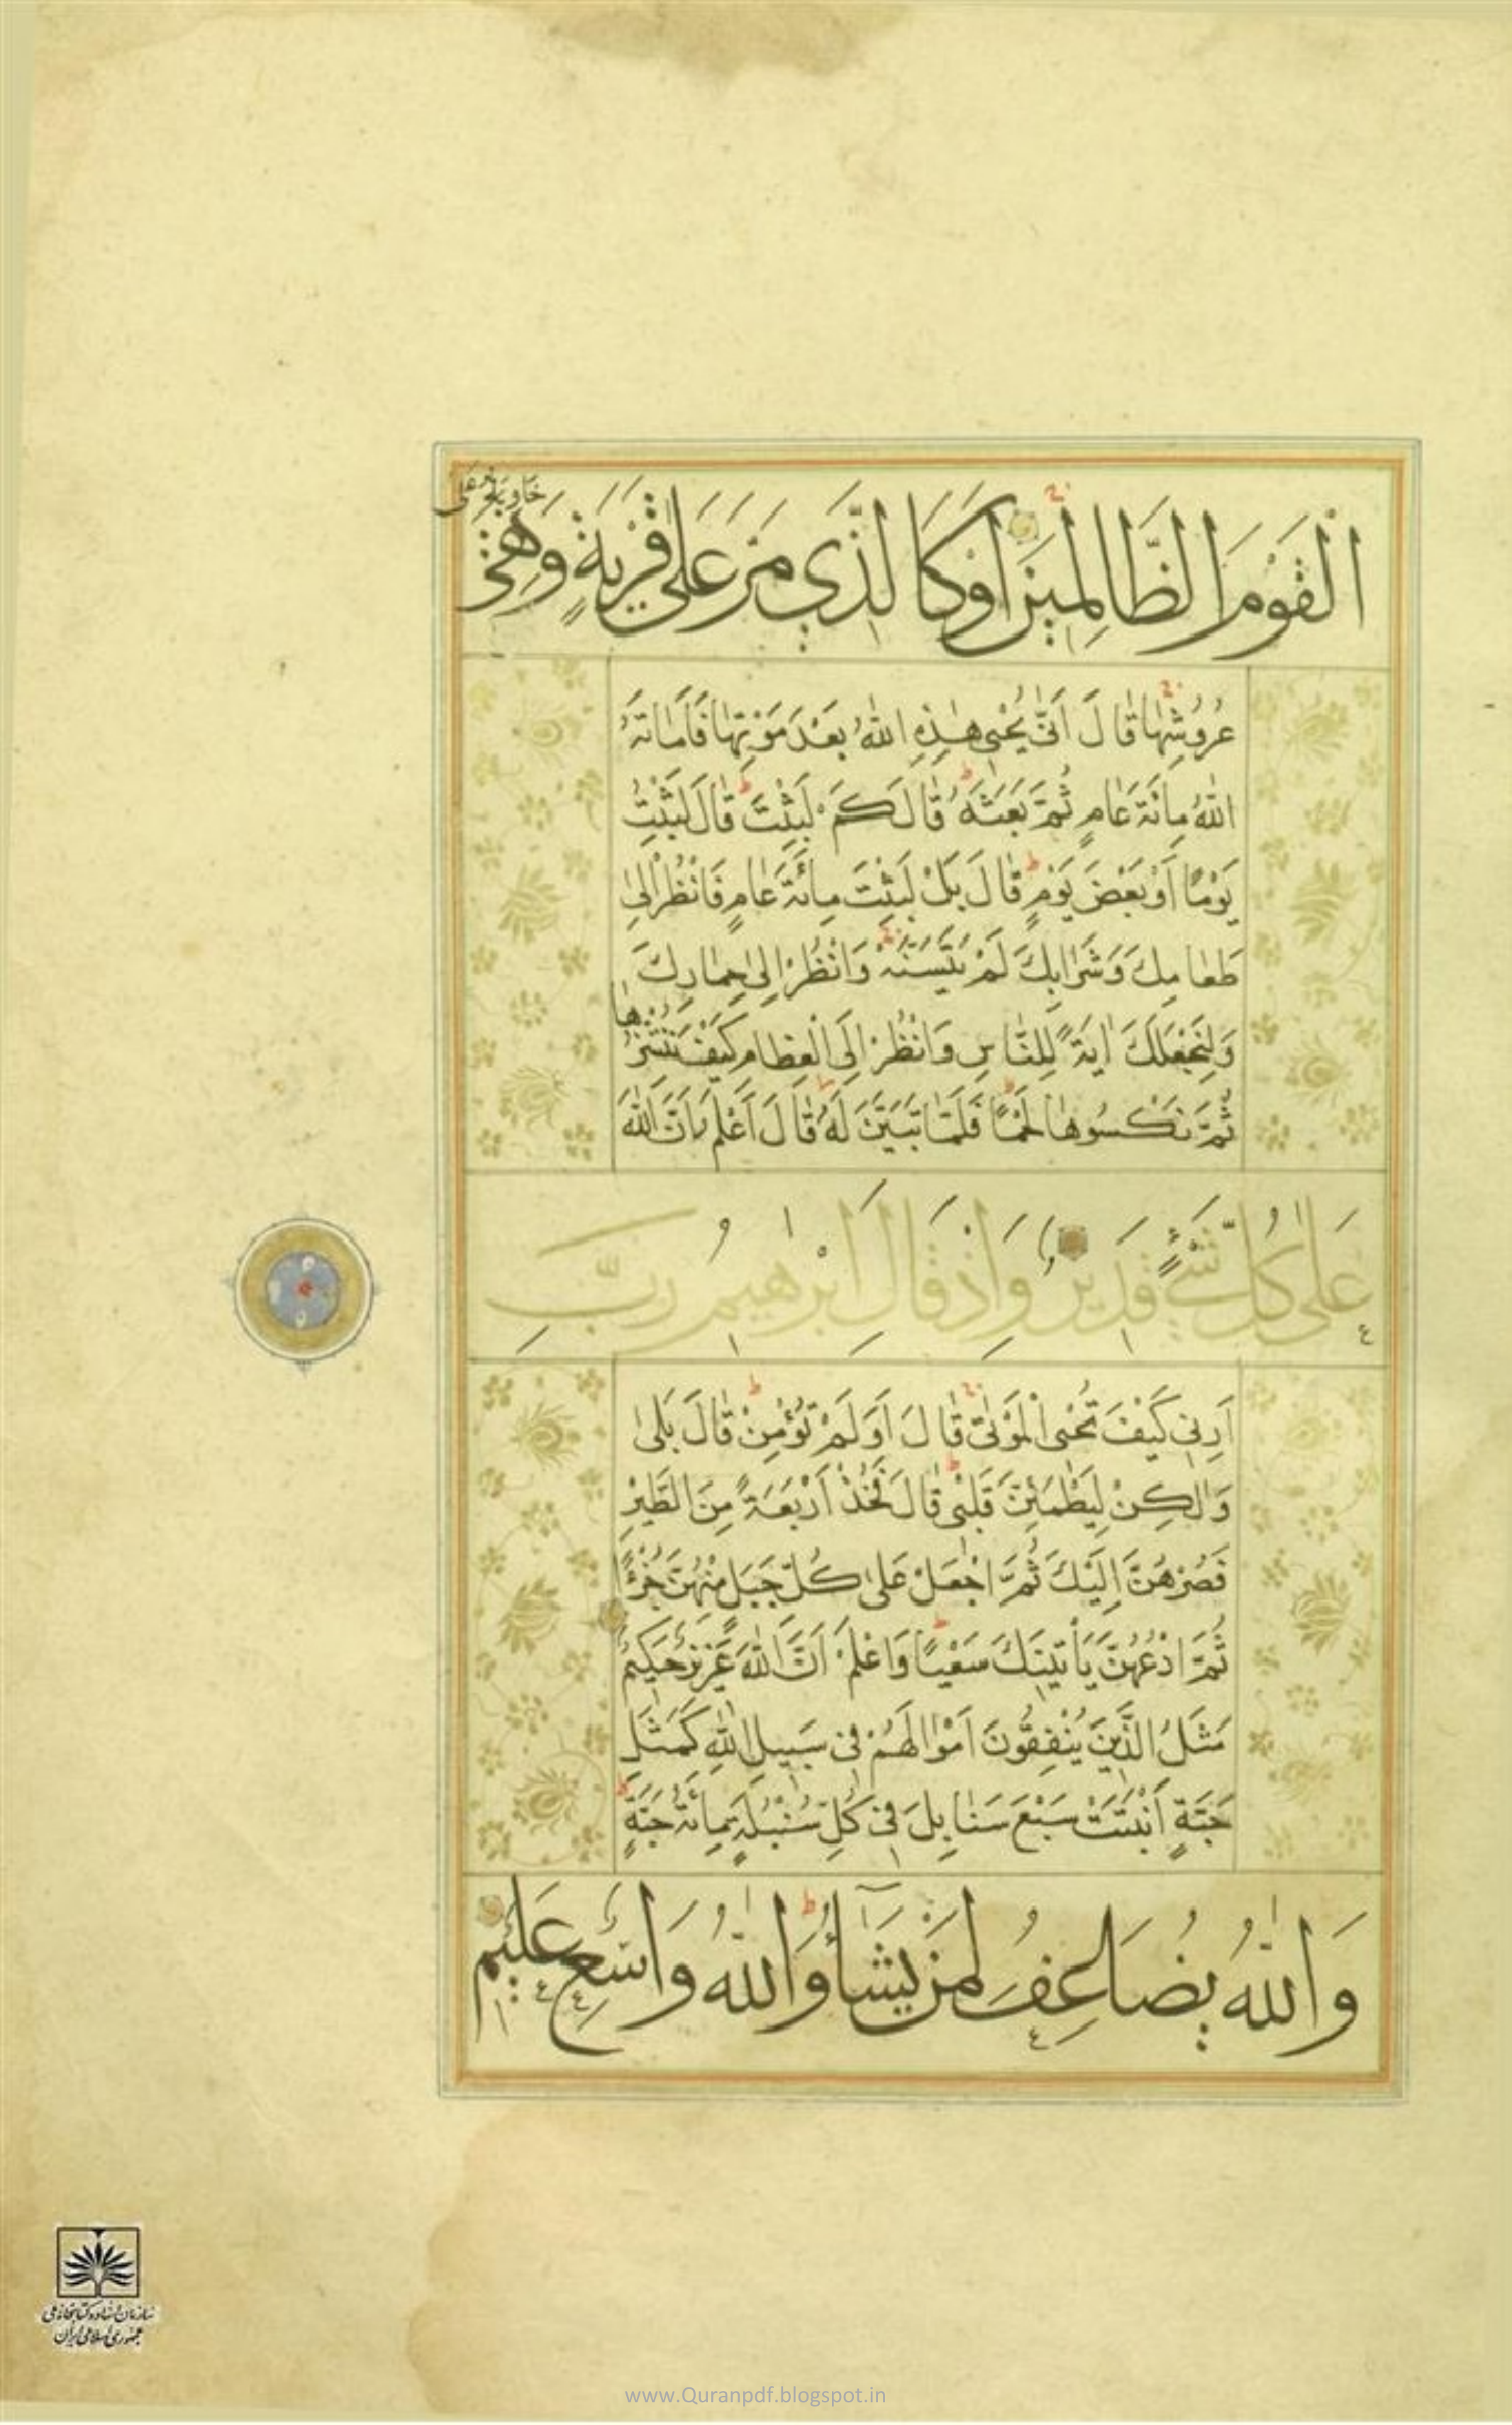 الْقَوْمَ الظَّالِمِينَ اَوْ كَالَّذِي مَرَّ عَلَى قَرْيَةٍ وَهِيَ
خَاوِيَةٌ عَلَى
عُرُوشِهَا قَالَ اَنّٰى يُحْيِي هٰذِهِ اللّٰهُ بَعْدَ مَوْتِهَا فَاَمَاتَهُ
اللّٰهُ مِائَةَ عَامٍ ثُمَّ بَعَثَهُ قَالَ كَمْ لَبِثْتَ قَالَ لَبِثْتُ
يَوْمًا اَوْ بَعْضَ يَوْمٍ قَالَ بَلْ لَبِثْتَ مِائَةَ عَامٍ فَانْظُرْ اِلٰى
طَعَامِكَ وَشَرَابِكَ لَمْ يَتَسَنَّهْ وَانْظُرْ اِلٰى حِمَارِكَ
وَلِنَجْعَلَكَ اٰيَةً لِلنَّاسِ وَانْظُرْ اِلَى الْعِظَامِ كَيْفَ نُنْشِزُهَا
ثُمَّ نَكْسُوهَا لَحْمًا فَلَمَّا تَبَيَّنَ لَهُ قَالَ اَعْلَمُ اَنَّ اللّٰهَ
عَلٰى كُلِّ شَيْءٍ قَدِيرٌ وَاِذْ قَالَ اِبْرٰهِيمُ رَبِّ
اَرِنِي كَيْفَ تُحْيِي الْمَوْتٰى قَالَ اَوَلَمْ تُؤْمِنْ قَالَ بَلٰى
وَلٰكِنْ لِيَطْمَئِنَّ قَلْبِي قَالَ فَخُذْ اَرْبَعَةً مِنَ الطَّيْرِ
فَصُرْهُنَّ اِلَيْكَ ثُمَّ اجْعَلْ عَلٰى كُلِّ جَبَلٍ مِنْهُنَّ جُزْءًا
ثُمَّ ادْعُهُنَّ يَأْتِينَكَ سَعْيًا وَاعْلَمْ اَنَّ اللّٰهَ عَزِيزٌ حَكِيمٌ
مَثَلُ الَّذِينَ يُنْفِقُونَ اَمْوَالَهُمْ فِي سَبِيلِ اللّٰهِ كَمَثَلِ
حَبَّةٍ اَنْبَتَتْ سَبْعَ سَنَابِلَ فِي كُلِّ سُنْبُلَةٍ مِائَةُ حَبَّةٍ
وَاللّٰهُ يُضَاعِفُ لِمَنْ يَشَآءُ وَاللّٰهُ وَاسِعٌ عَلِيمٌ
سازمان اسناد و کتابخانه ملی
جمهوری اسلامی ایران
www.Quranpdf.blogspot.in